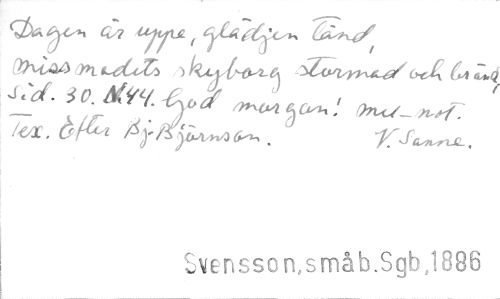 Dagen är uppe, glädjen tänd,
missmodets skyborg stormad och bränd,
Sid. 30. N.44. God morgon! mel-not.
Tex. Efter Bj. Björnson. V. Sanne.
Svensson,småb.Sgb,1886